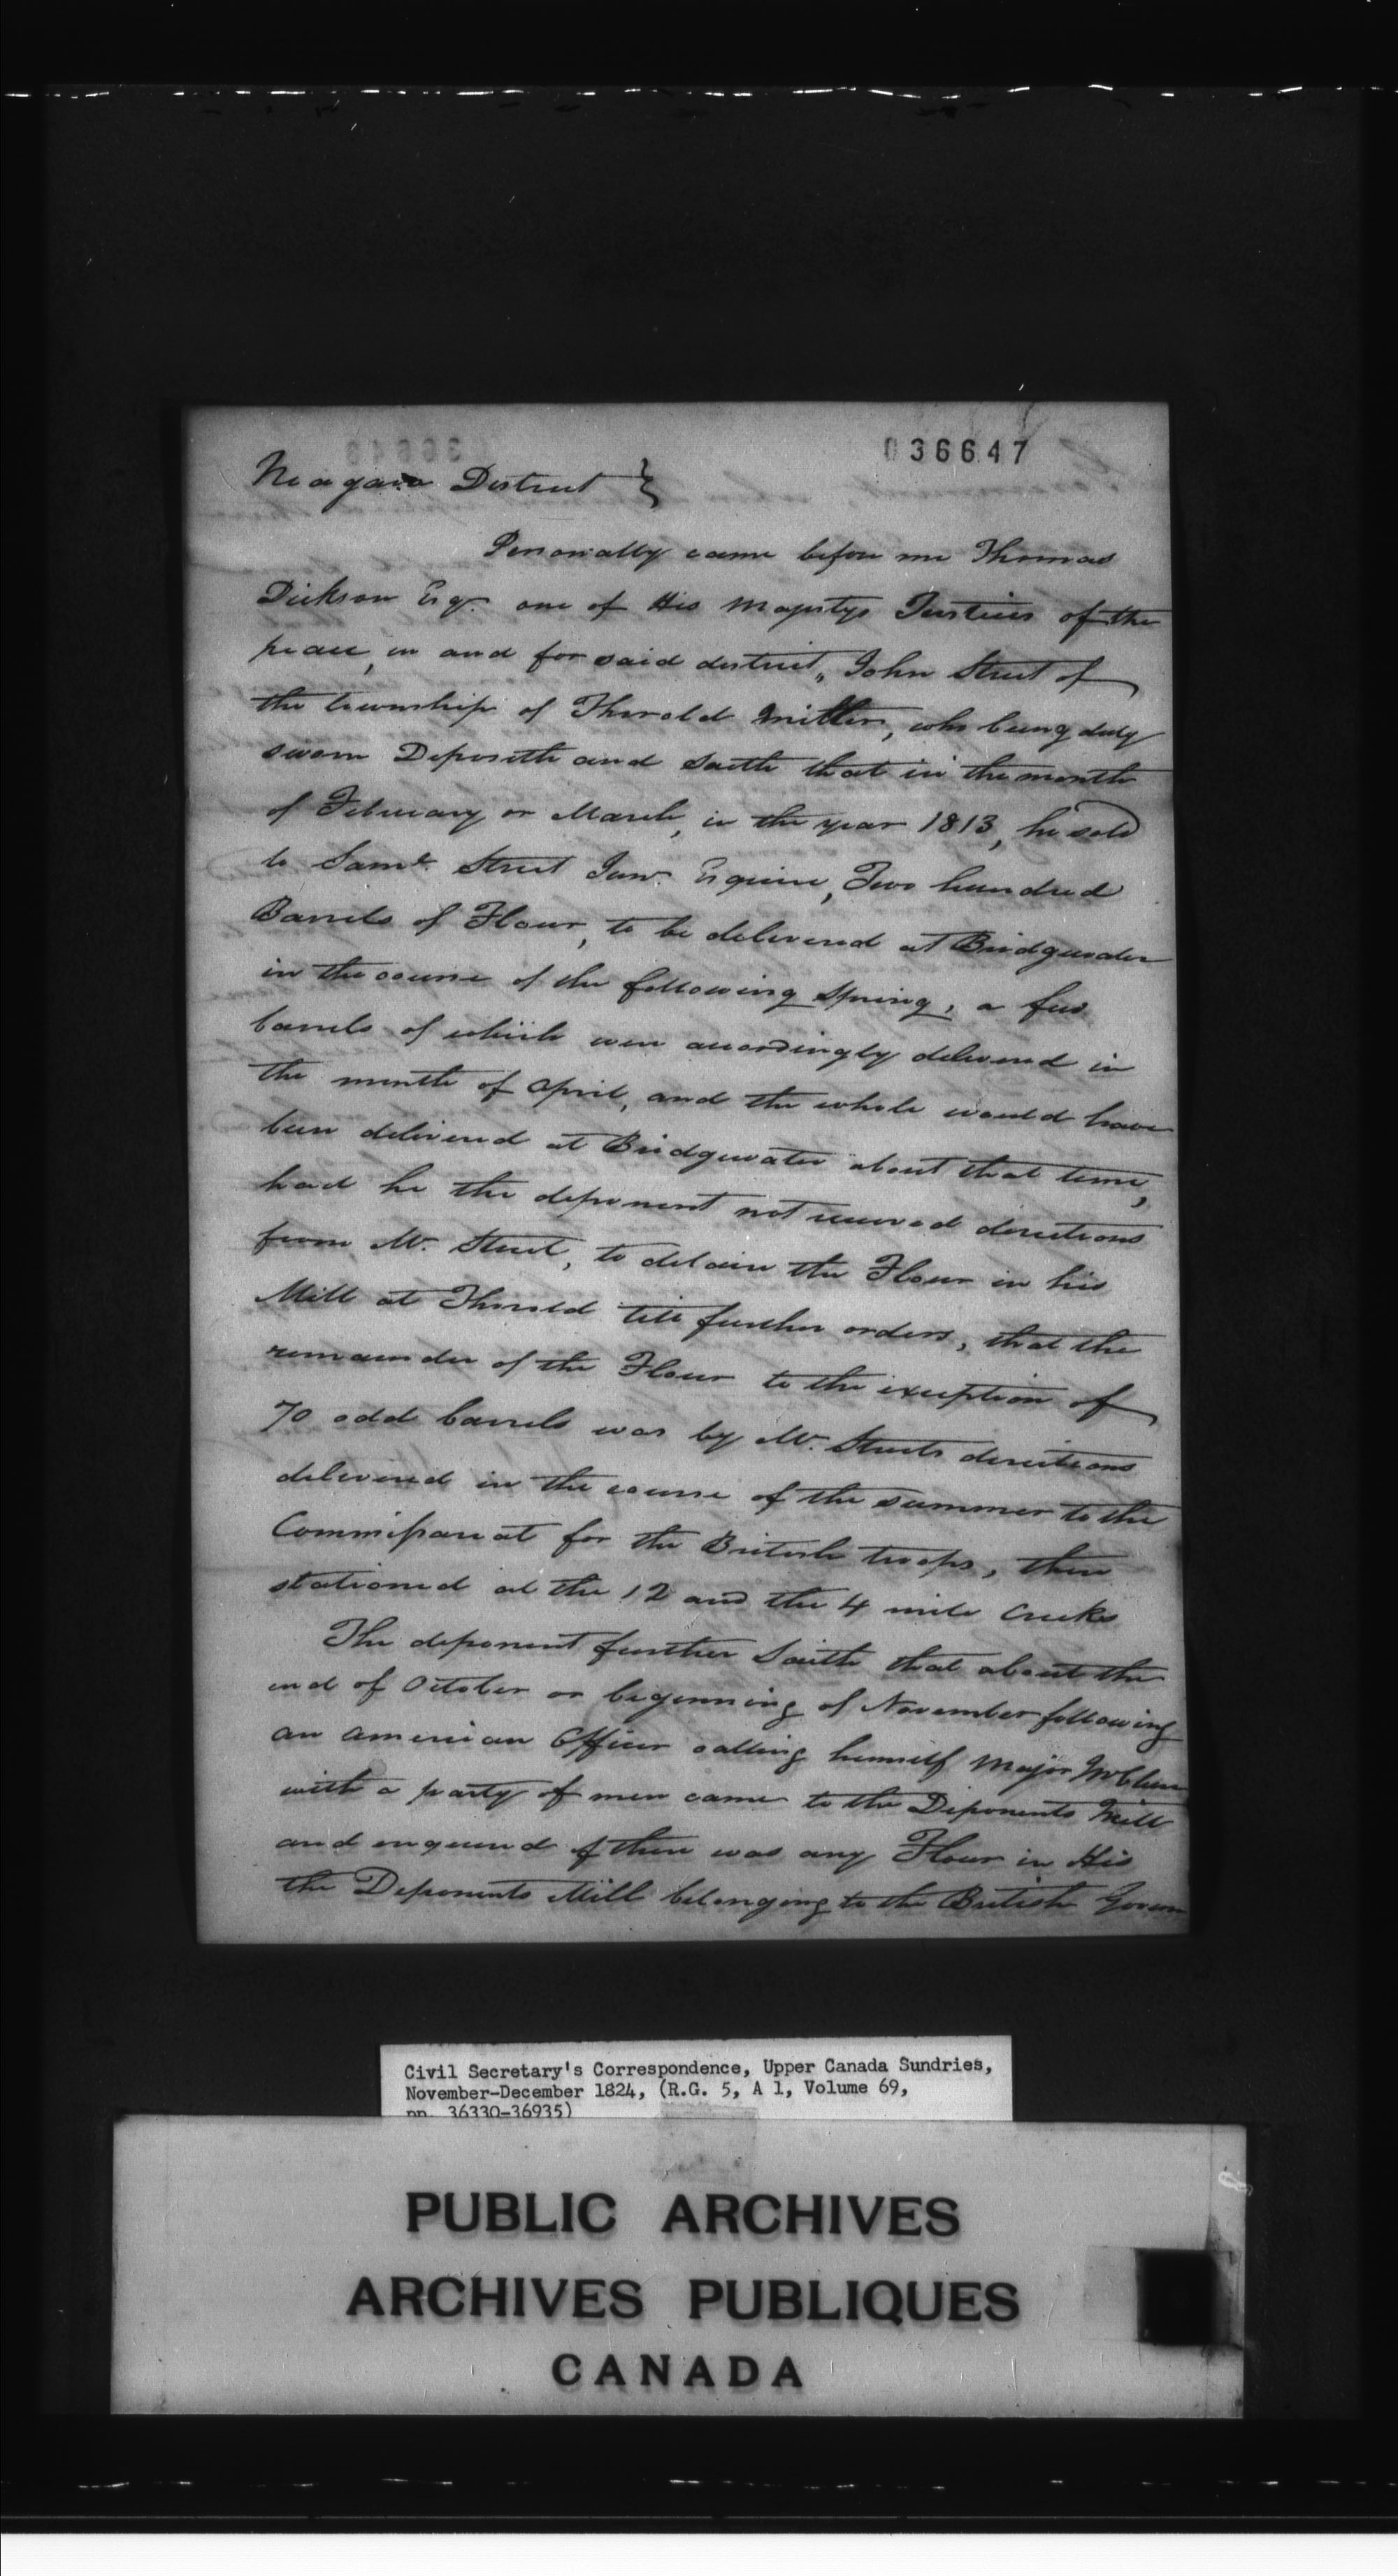 036647
Niagara District }
Personally came before me Thomas
Dickson Esqr. one of His Majestys Justices of the
peace, in and for said district, John Street of
the township of Thorold Miller, who being duly
sworn Deposeth and Saith that in the month
of February or March, in the year 1813, he sold
to Saml. Street Junr. Esquire, Two hundred
Barrels of Flour, to be delivered at Bridgewater
in the course of the following Spring, a few
barrels of which were accordingly delivered in
the month of April, and the whole would have
been delivered at Bridgewater about that time,
had he the deponent not received directions
from Mr. Street, to detain the Flour in his
Mill at Thorold till further orders, that the
remainder of the Flour to the exception of
70 odd barrels was by Mr. Streets directions
delivered in the course of the summer to the
Commissariat for the British troops, then
stationed at the 12 and the 4 mile Creeks
The deponent further Saith that about the
end of October or beginning of November following
an American Officer calling himself Major
with a party of men came to the Deponents Mill
and enquired if there was any Flour in His
the Deponents Mill belonging to the British Govern
Civil Secretary's Correspondence, Upper Canada Sundries,
November-December 1824, (R.G. 5, A 1, Volume 69,
pp. 36330-36935)
PUBLIC ARCHIVES
ARCHIVES PUBLIQUES
CANADA